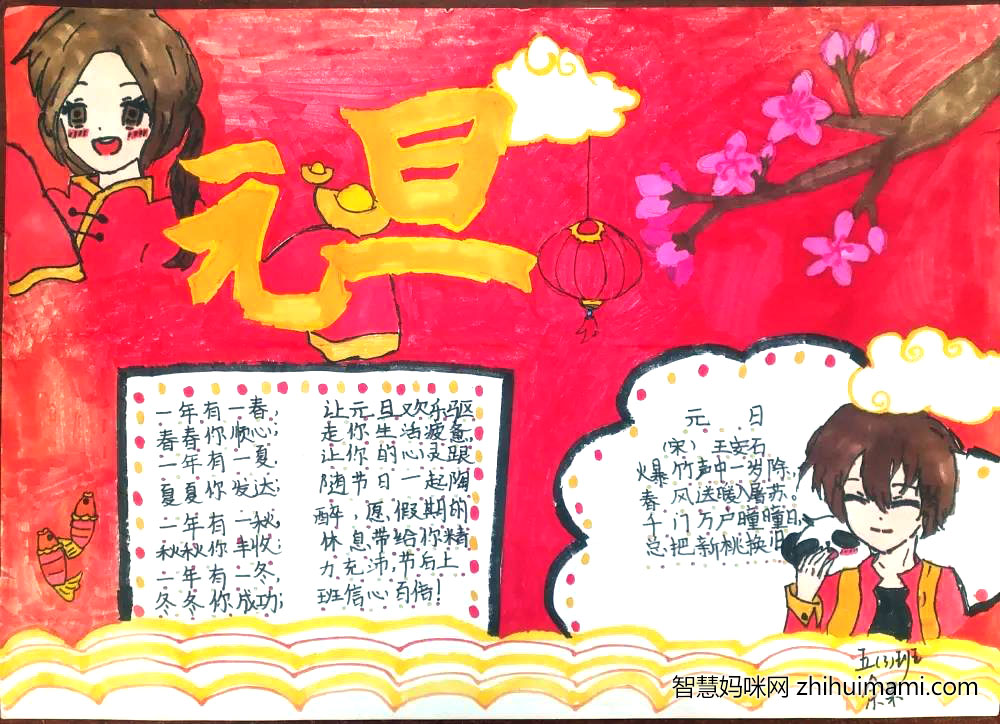 元旦
一年有一春,
春春你顺心;
一年有一夏,
夏夏你发达;
一年有一秋,
秋秋你丰收;
一年有一冬,
冬冬你成功;
让元旦欢乐驱
走你生活疲惫,
让你的心灵跟
随节日一起陶
醉,愿假期的
休息带给你精
力充沛,节后上
班信心百倍!
元 日
(宋) 王安石
爆竹声中一岁除,
春风送暖入屠苏。
千门万户曈曈日,
总把新桃换旧
五(3)班
智慧妈咪网 zhihuimami.com